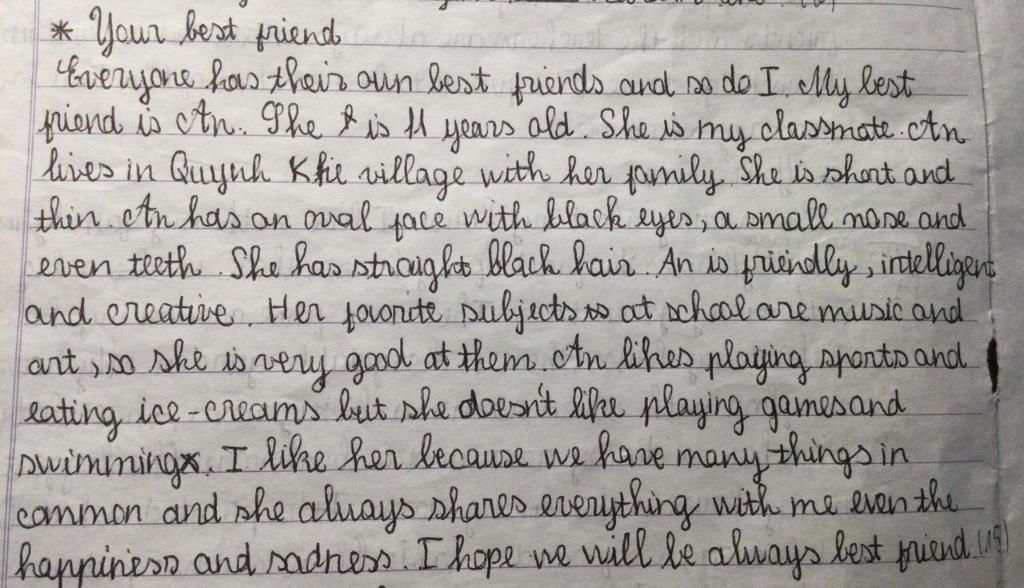 * Your best friend
Everyone has their own best friends and so do I. My best
friend is An. She is 11 years old. She is my classmate. An
lives in Quynh Khe village with her family. She is short and
thin. An has an oval face with black eyes, a small nose and
even teeth. She has straight black hair. An is friendly, intelligent
and creative. Her favorite subjects at school are music and
art, so she is very good at them. An likes playing sports and
eating ice-creams but she doesn't like playing games and
swimming. I like her because we have many things in
common and she always shares everything with me even the
happiness and sadness. I hope we will be always best friend